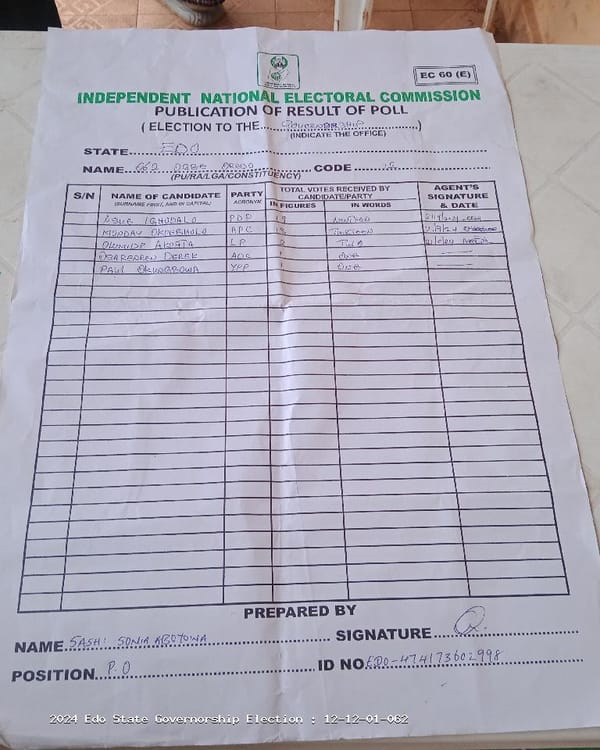 EC 60 (E)
INDEPENDENT NATIONAL ELECTORAL COMMISSION
PUBLICATION OF RESULT OF POLL
( ELECTION TO THE... GOVERNORSHIP ...)
(INDICATE THE OFFICE)
STATE... EDO
NAME... CODE...
(PU/RA/LGA/CONSTITUENCY)
S/N NAME OF CANDIDATE (SURNAME FIRST, AND IN CAPITAL) PARTY ACRONYM TOTAL VOTES RECEIVED BY CANDIDATE/PARTY IN FIGURES IN WORDS AGENT'S SIGNATURE & DATE
ASUE IGHODALO PDP
MONDAY OKPEBHOLO APC 13 THIRTEEN
OLUMIDE AKPATA LP 2 TWO
DEREK 1 ONE
PAUL OKUNGBOWA YPP 1 ONE
PREPARED BY
NAME. SONIA SIGNATURE
POSITION... P.O ID NO. EDO-474173602998
2024 Edo State Governorship Election : 12-12-01-062